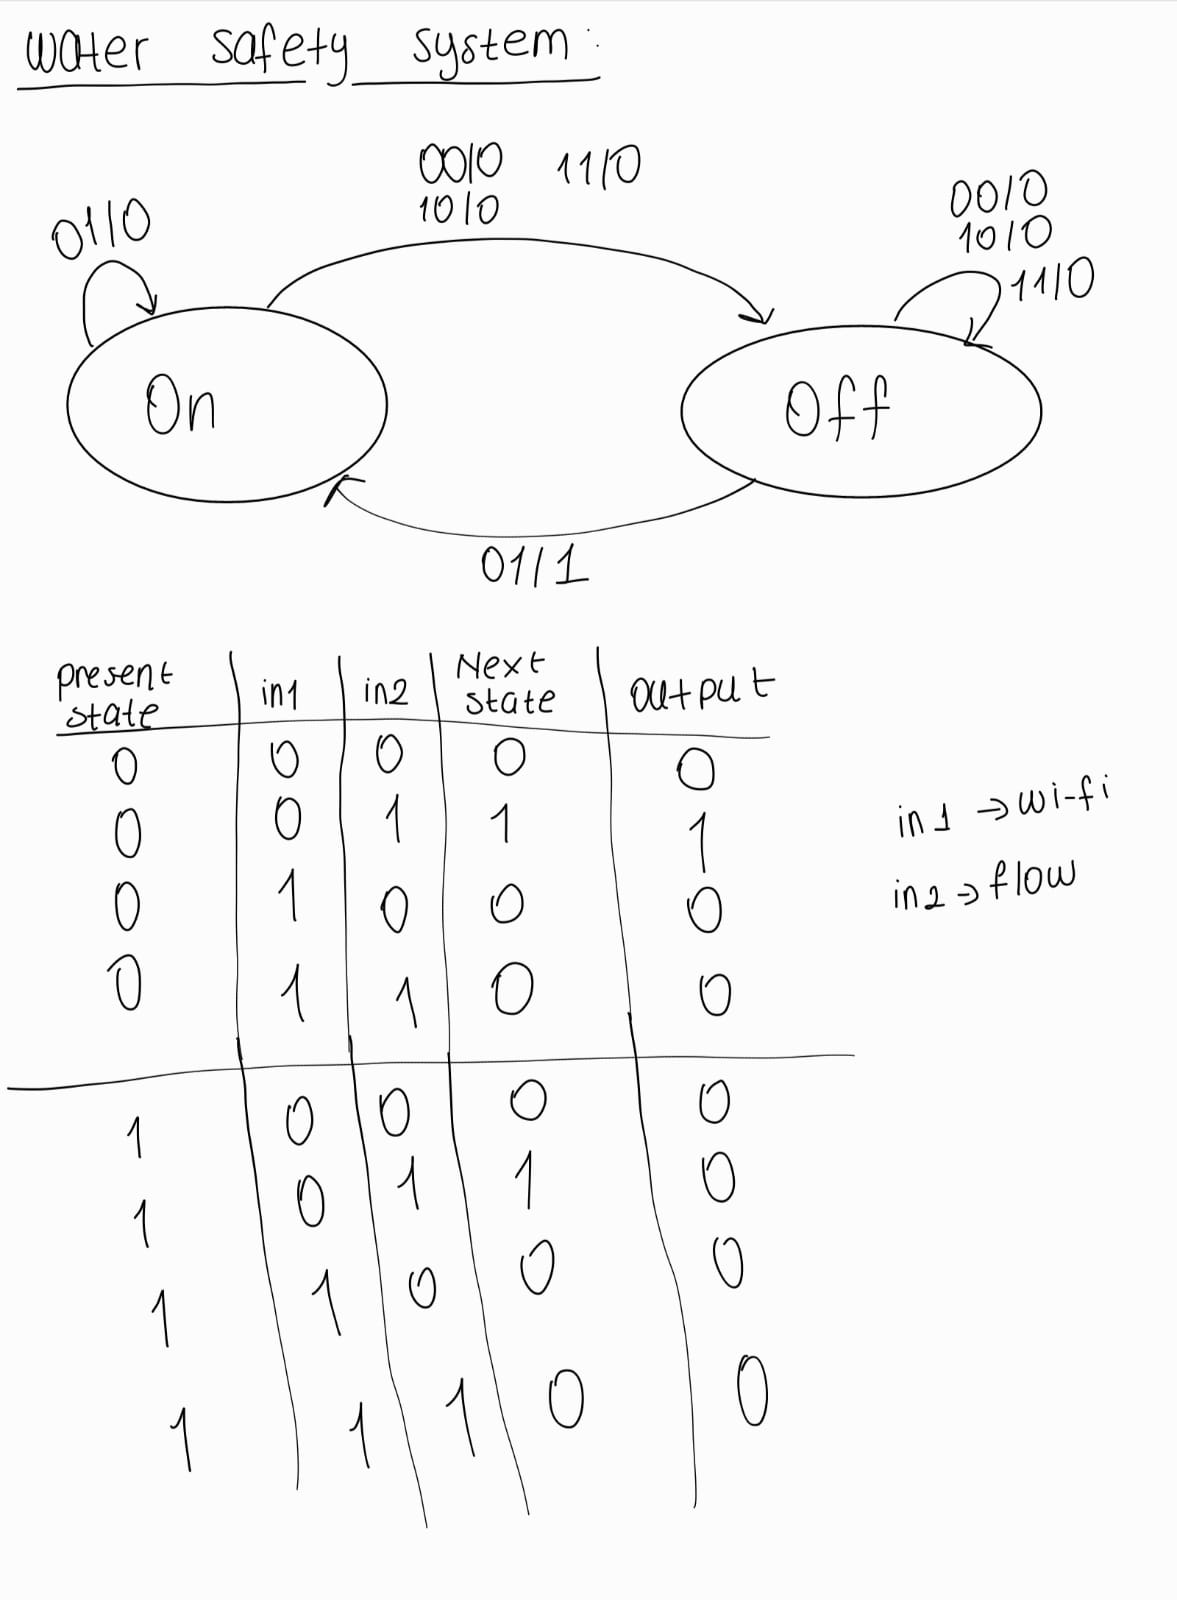 water safety system :
00/0 11/0
10/0
01/0
00/0
10/0
11/0
On
Off
01/1
present state in1 in2 Next state output
0 0 0 0 0
0 0 1 1 1
0 1 0 0 0
0 1 1 0 0
1 0 0 0 0
1 0 1 1 0
1 1 0 0 0
1 1 1 0 0
in1 → wi-fi
in2 → flow